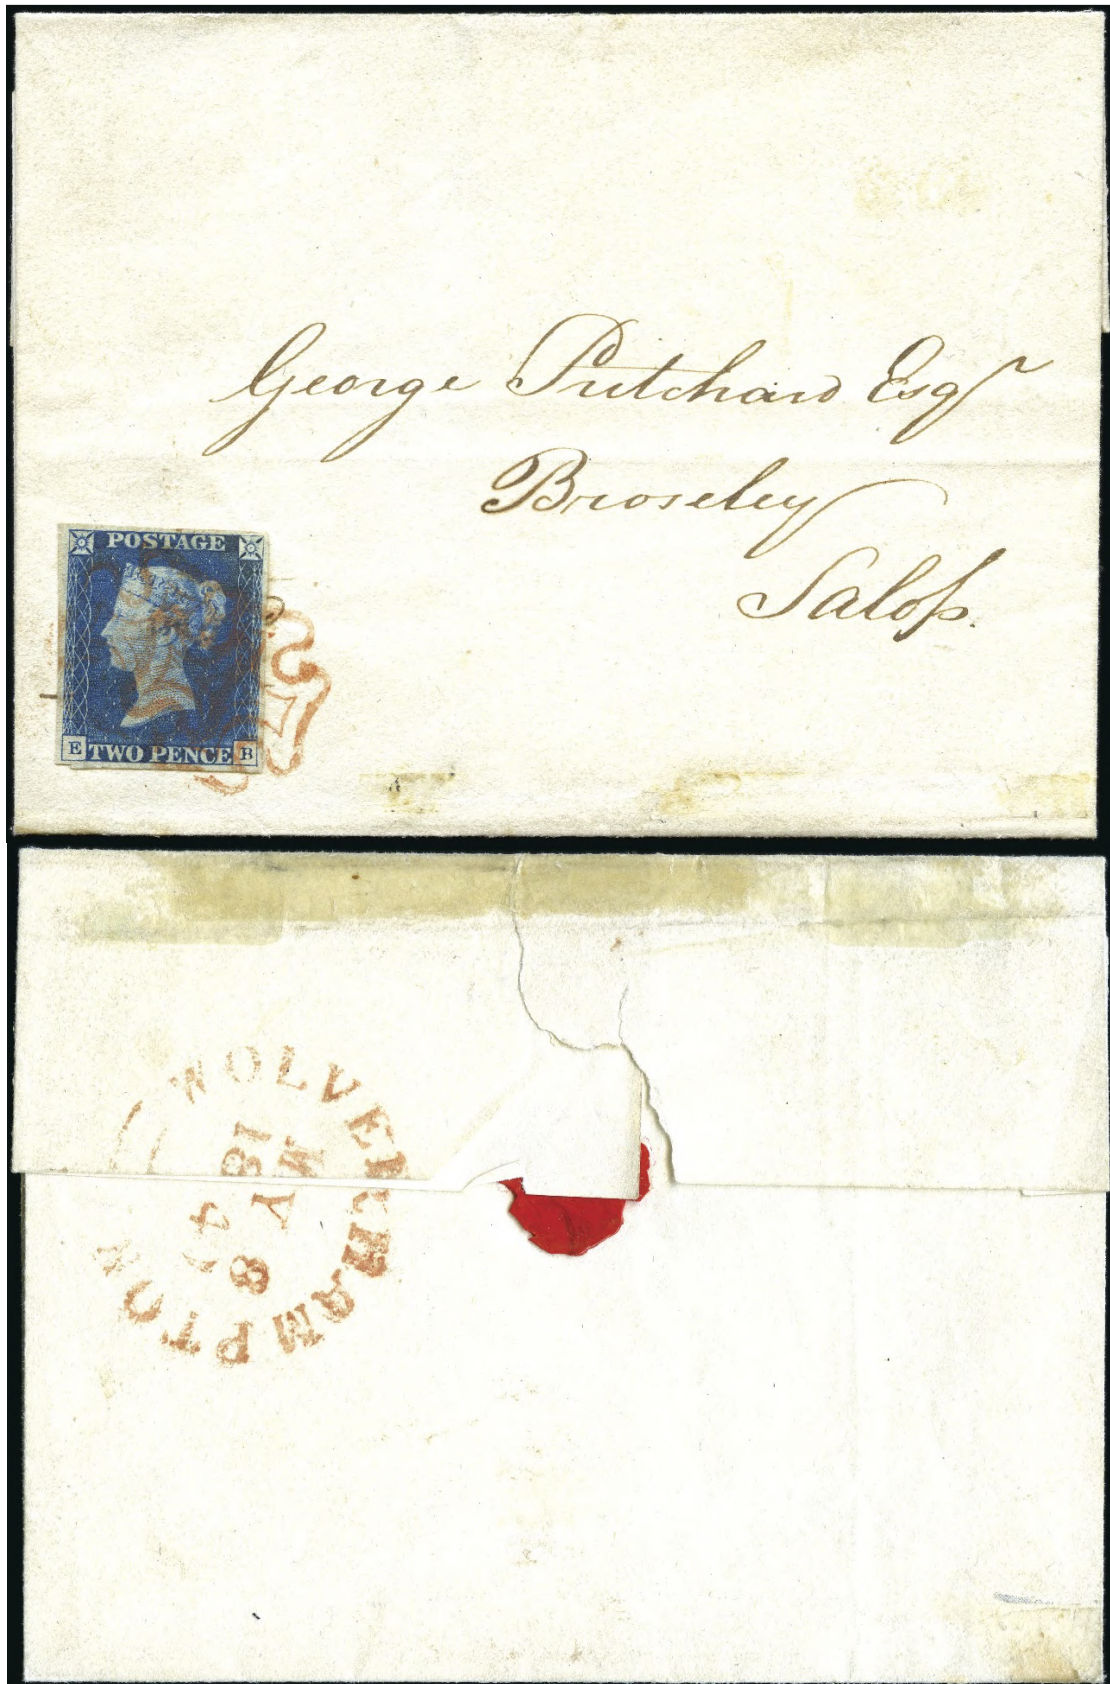 George Pritchard Esqr
Broseley
Salop.
POSTAGE
E TWO PENCE B
WOLVERHAMPTON
MY 8
184